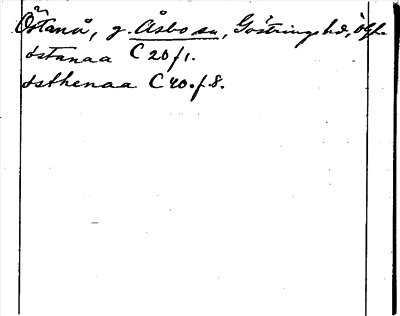 Östanå, g. Åsbo sn, Göstrings hd, Ögl.
östanaa C 20 f 1.
østhenaa C 40. f. 8.